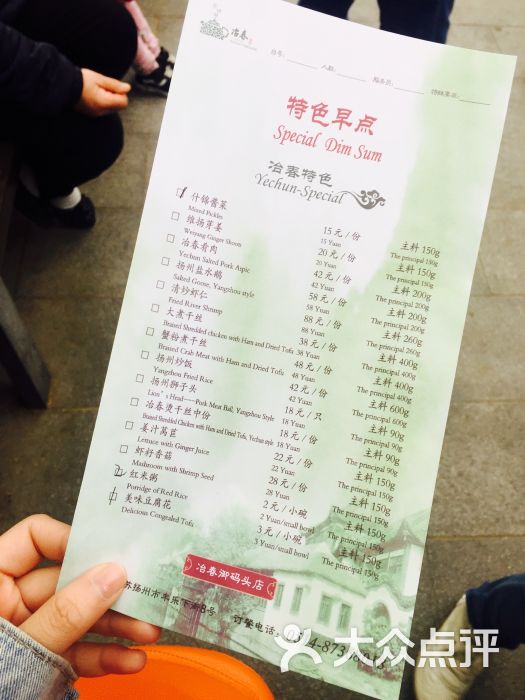 冶春
台号:______ 人数:______ 服务员:______ 特殊要求:______
特色早点
Special Dim Sum
冶春特色
Yechun-Special
什锦酱菜 15元/份 主料150g
Mixed Pickles 15 Yuan The principal 150g
维扬芽姜 20元/份 主料150g
Weiyang Ginger Shoots 20 Yuan The principal 150g
冶春肴肉 42元/份 主料200g
Yechun Salted Pork Aspic 42 Yuan The principal 200g
扬州盐水鹅 58元/份 主料200g
Salted Goose, Yangzhou style 58 Yuan The principal 200g
清炒虾仁 88元/份 主料260g
Fried River Shrimp 88 Yuan The principal 260g
大煮干丝 38元/份 主料400g
Braised Shredded chicken with Ham and Dried Tofu 38 Yuan The principal 400g
蟹粉煮干丝 48元/份 主料400g
Braised Crab Meat with Ham and Dried Tofu 48 Yuan The principal 400g
扬州炒饭 42元/份 主料600g
Yangzhou Fried Rice 42 Yuan The principal 600g
扬州狮子头 18元/只 主料90g
Lion's Head-----Pork Meat Ball, Yangzhou Style 18 Yuan The principal 90g
冶春烫干丝中份 18元/份 主料90g
Braised Shredded Chicken with Ham and Dried Tofu, Yechun style 18 Yuan The principal 90g
姜汁莴苣 22元/份 主料150g
Lettuce with Ginger Juice 22 Yuan The principal 150g
虾籽香菇 28元/份 主料150g
Mushroom with Shrimp Seed 28 Yuan The principal 150g
红米粥 2元/小碗 主料150g
Porridge of Red Rice 2 Yuan/small bowl The principal 150g
美味豆腐花 3元/小碗 主料150g
Delicious Congealed Tofu 3 Yuan/small bowl The principal 150g
冶春御码头店
苏扬州市丰乐下街8号 订餐电话:
大众点评